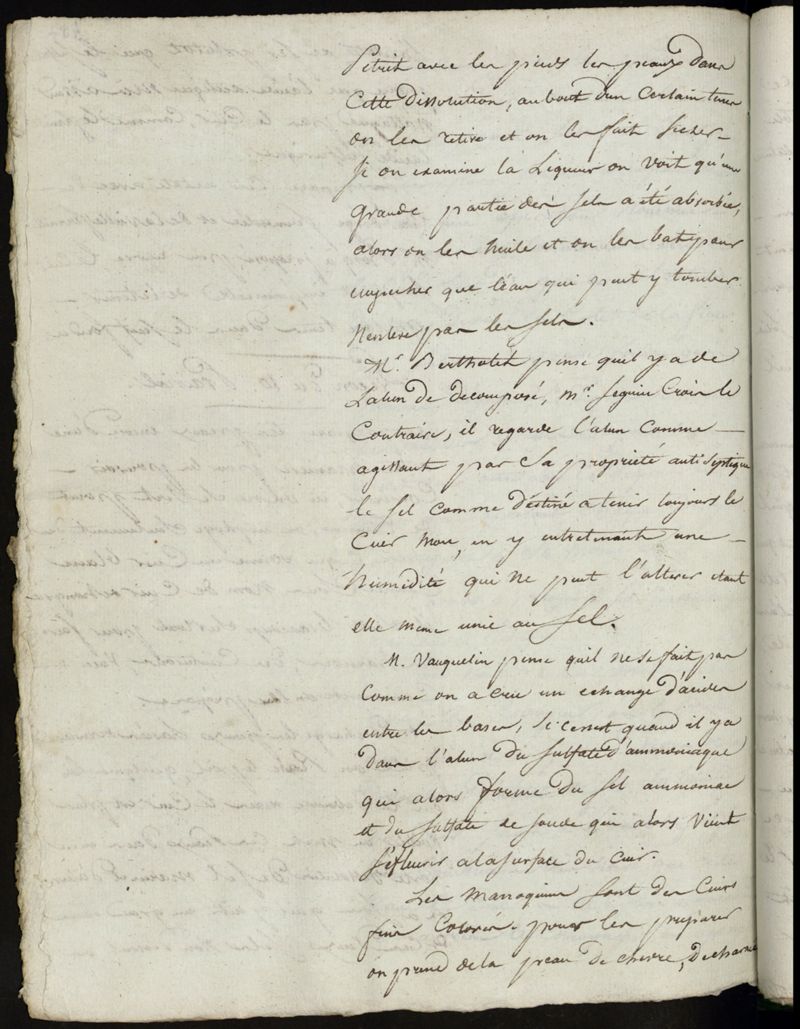 Petrit avec les pieds les peaux dans
Cette dissolution, au bout d'un certain tems
on les retire et on les fait secher –
Si on examine la Liqueur on voit qu'une
grande partie des sels a été absorbée,
alors on les huile et on les bat pour
empecher que l'eau qui peut y tomber
n'enleve pas les sels.
Mr. Bertholet pense quil y a de
L'alun de decomposé, mr. Seguin Croit le
Contraire, il regarde l'alun comme –
agissant par sa propriété antiseptique
le sel comme destiné a tenir toujours le
Cuir mou, en y entretenant une –
humidité qui ne peut l'alterer etant
elle meme unie au sel.
M. Vauquelin pense quil ne se fait pas
Comme on a creu un echange d'acides
entre les bases, si cen'est quand il y a
dans l'alun du sulfate d'ammoniaque
qui alors forme du sel ammoniac
et du sulfate de soude qui alors vient
s'efleurir a la surface du cuir.
Les Maroquins sont des Cuirs
fins Colorés. pour les préparer
on prend de la peau de chevre, Decharnée